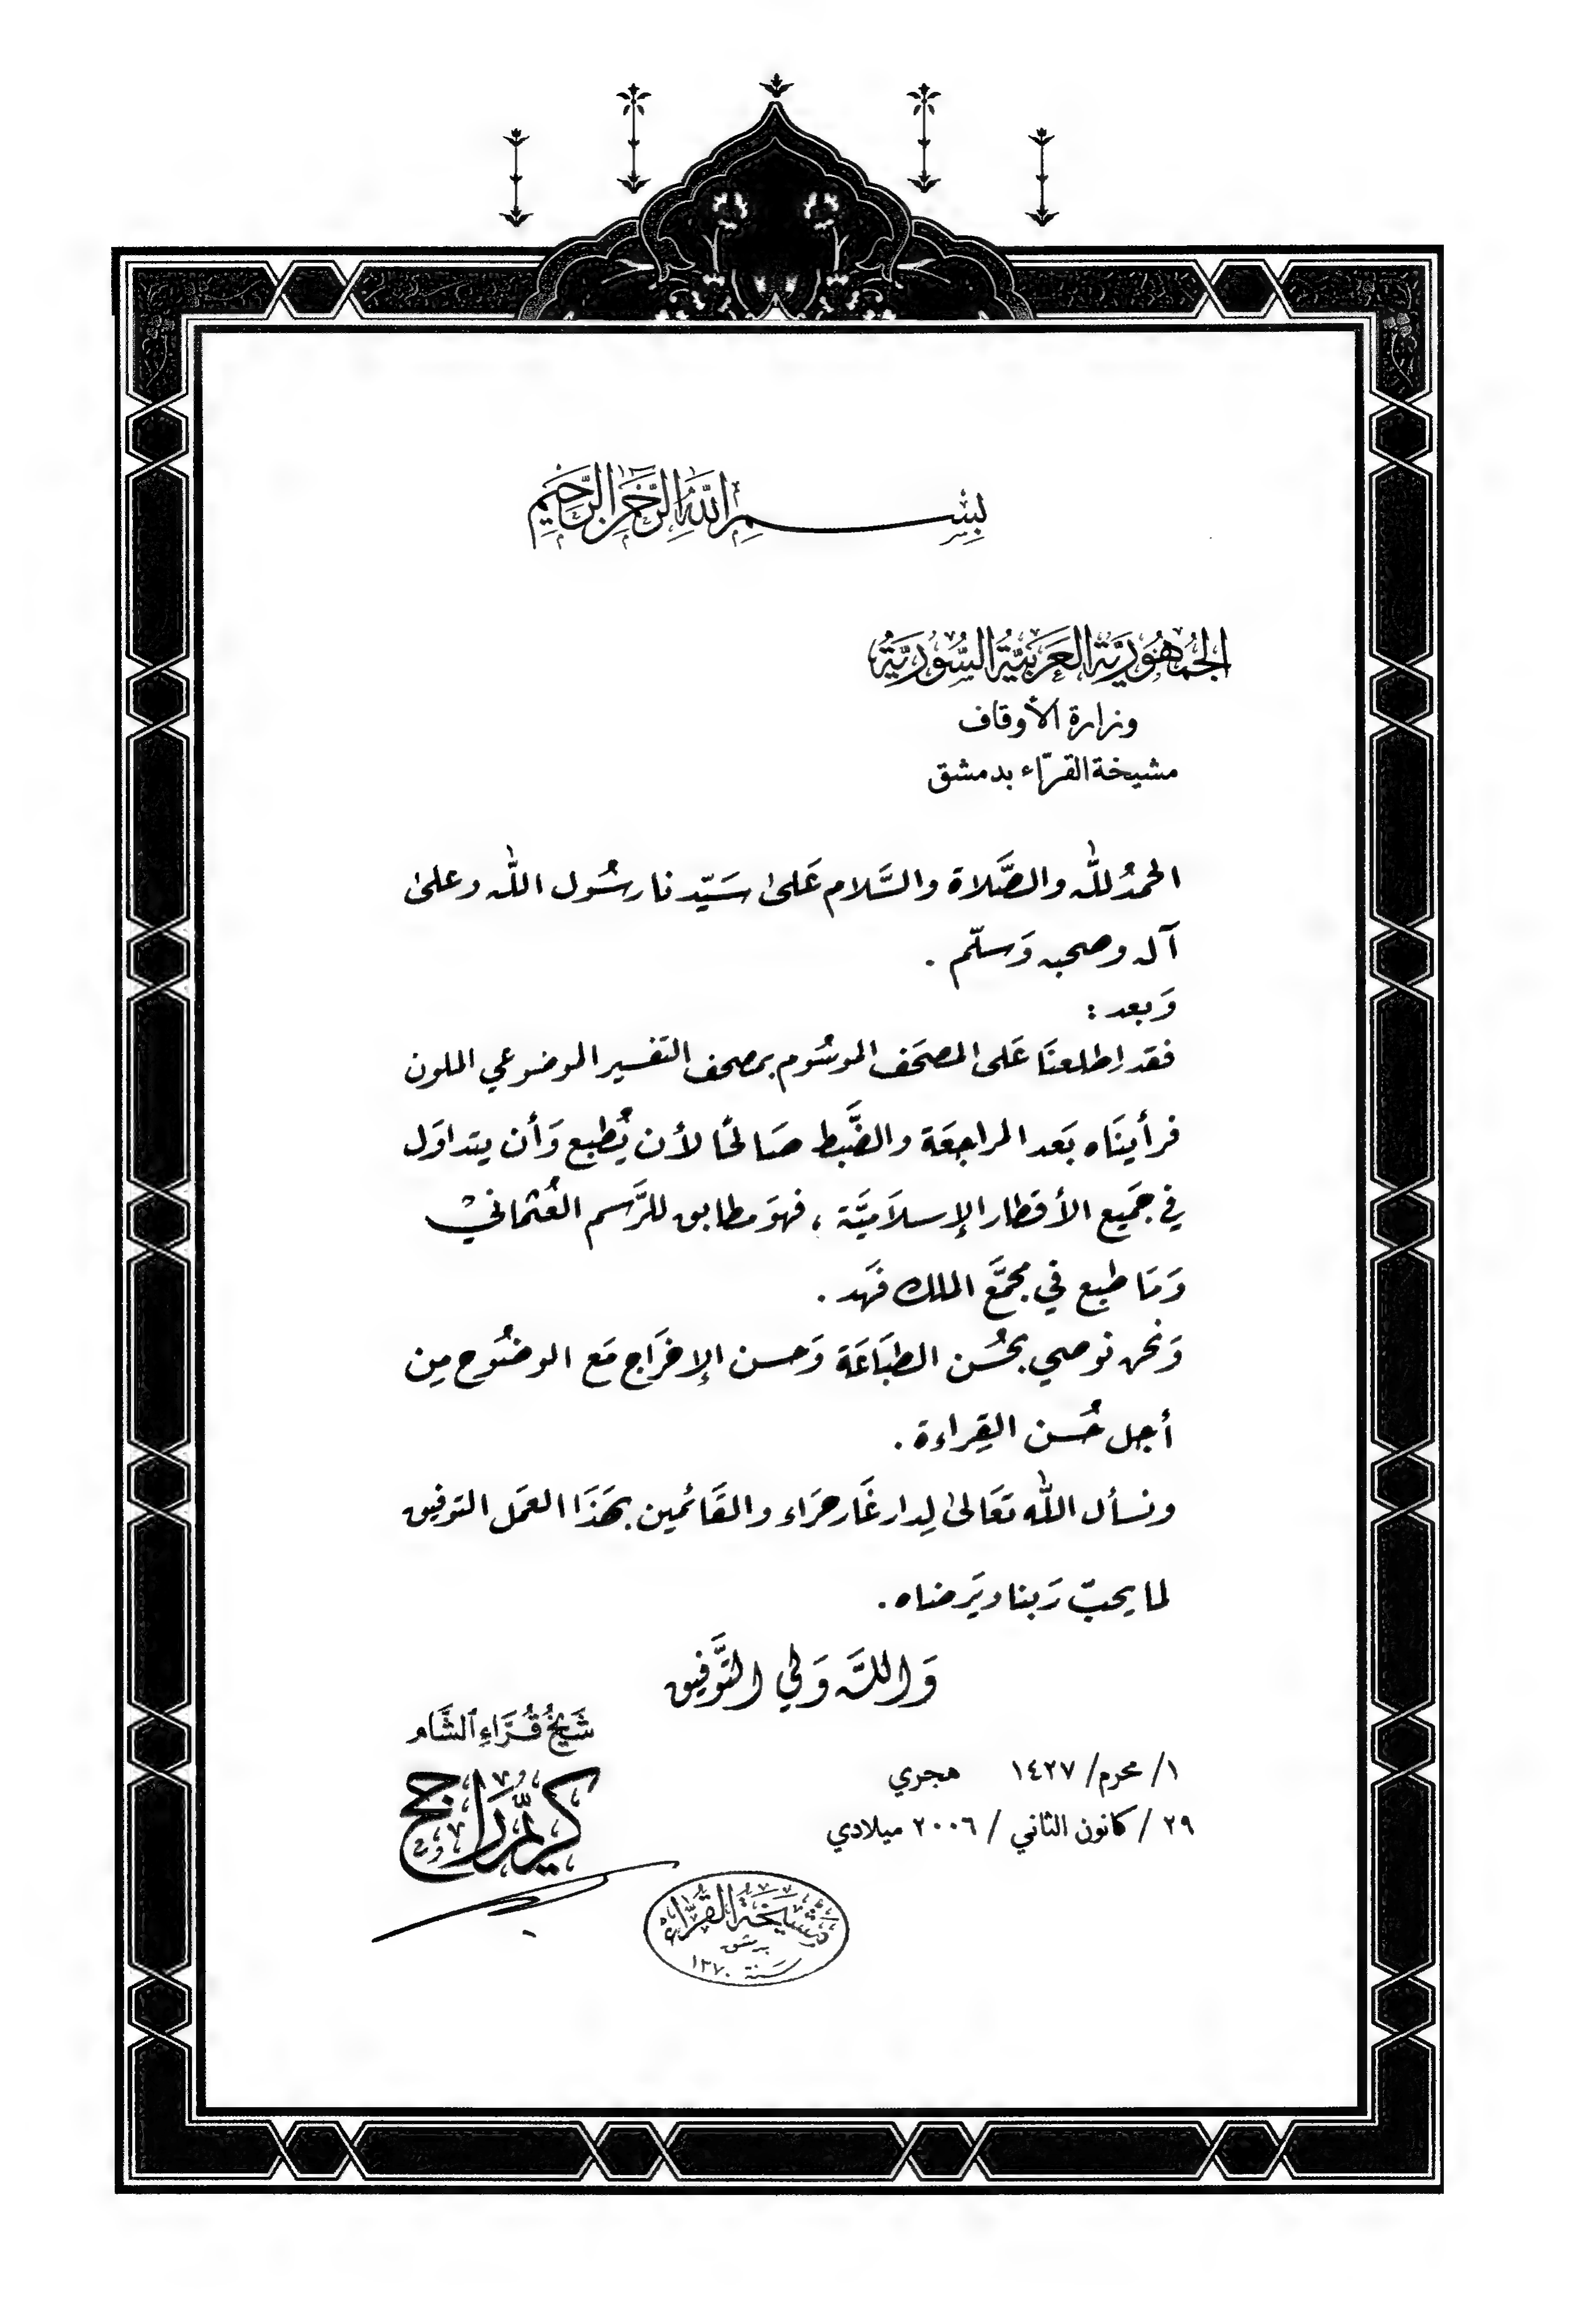 بِسْمِ اللَّهِ الرَّحْمَٰنِ الرَّحِيمِ
الجُمْهُورِيَّة العَرَبِيَّة السُّورِيَّةُ
وزارة الأوقاف
مشيخة القرّاء بدمشق
الحمدُ لله والصَّلاة والسَّلام عَلىٰ سَيّدنا رسُول الله وعلىٰ
آله وصحبه وَسلّم .
وَبعد :
فقد اِطلعنَا عَلى المصحَف الموسُوم بمصحف التفسير الموضوعي الملون
فرأينَاه بَعد المراجعَة والضَّبط صَالحًا لأن يُطبع وَأن يتداوَل
في جَميع الأقطار الإسلاَميَّة ، فهوَ مطابق للرَّسم العُثمانيْ
وَمَا طبع في مجمَّع الملك فَهد .
وَنحن نوصي بحُسَن الطبَاعَة وَحسن الإخرَاج مَع الوضُوح مِن
أجل حُسن القِراءة .
ونسأل الله تعَالىٰ لِدار غَار حرَاء والقَائمين بهَذَا العمَل التوفيق
لما يحبّ رَبنا ويَرضاه .
وَاللَّه وَلي التَّوفيق
شَيْخُ قُرَّاءِ ٱلشَّام
كريّم راجح
١/ محرم/ ١٤٢٧ هجري
٢٩ / كانون الثاني / ٢٠٠٦ ميلادي
مَشْيَخَةُ القُرَّاء
بدمشق
سَنة ١٣٧٠